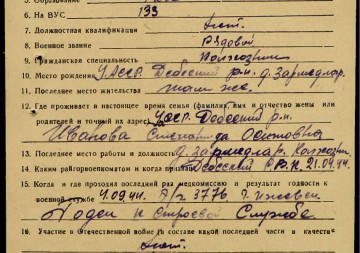 5. Образование
6. На ВУС 133
7. Должностная квалификация нет.
8. Военное звание Рядовой
9. Гражданская специальность Колхозник
10. Место рождения УАССР. Дебесский р-н. д. Зармедлар.
11. Последнее место жительства там же.
12. Где проживает в настоящее время семья (фамилия, имя и отчество жены или
родителей и точный их адрес) УАССР. Дебесский р-н.
Иванова Степанида Осиповна
13. Последнее место работы и должность д. Зармедлар. Колхозник
14. Каким райгорвоенкоматом и когда призван Дебесский Р.В.К. 21.04.44.
15. Когда и где проходил последний раз медкомиссию и результат годности к
военной службе 4.09.44. 3776. г. Ижевск.
Годен к строевой службе
16. Участие в Отечественной войне (в составе какой последней части и качестве)
нет.